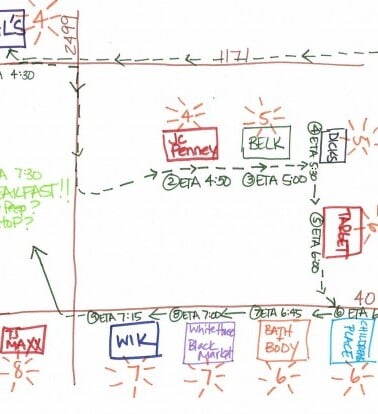 L'S
4
2499
1171
4:30
4
5
JC
Penney
BELK
④
ETA 5:30
DICKS
5
②ETA 4:50
③ETA 5:00
7:30
AKFAST!!
Peep?
HOP?
⑤
ETA 6:00
TARGET
6
40
⑨ETA 7:15
⑧ETA 7:00
⑦ETA 6:45
⑥ETA 6
TJ
MAXX
8
WIK
7
White House
Black
Market
7
BATH
+
BODY
6
CHILDRENS
PLACE
6